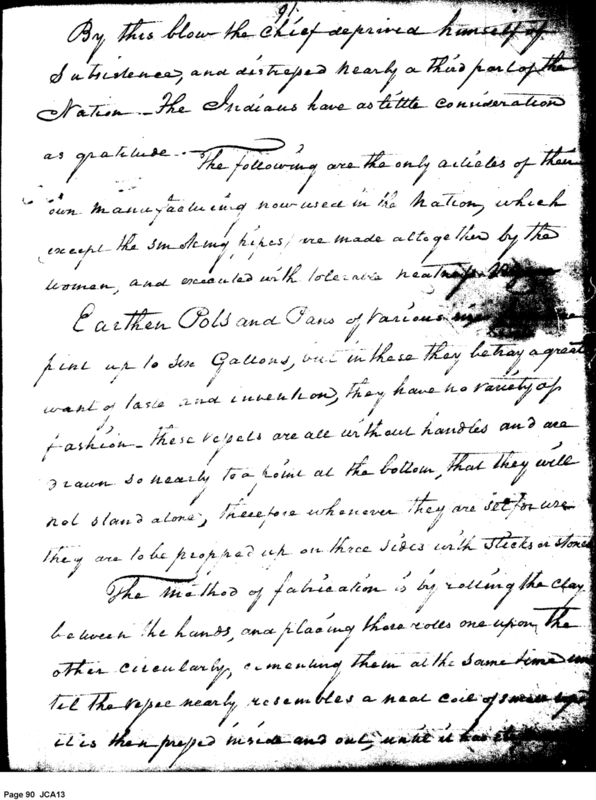 91
By this blow the Chief deprived himself of
Subsistence, and distressed nearly a third part of the
Nation - The Indians have as little consideration
as gratitude. - The following are the only articles of their
own manufacturing now used in the Nation, which
(except the smoking pipes) are made altogether by the
women, and executed with tolerable neatness.
Earthen Pots and Pans of various
pint up to six Gallons, but in these they betray a great
want of taste and invention, they have no variety of
fashion - these vessels are all without handles and are
drawn so nearly to a point at the bottom, that they will
not stand alone, therefore whenever they are set for use
they are to be propped up on three sides with sticks or stones
The method of fabrication is by rolling the clay
between the hands, and placing those roles one upon the
other circularly, cementing them at the same time un
til the vessel nearly resembles a neat coil of small
it is then pressed inside and out, until it has
Page 90 JCA13